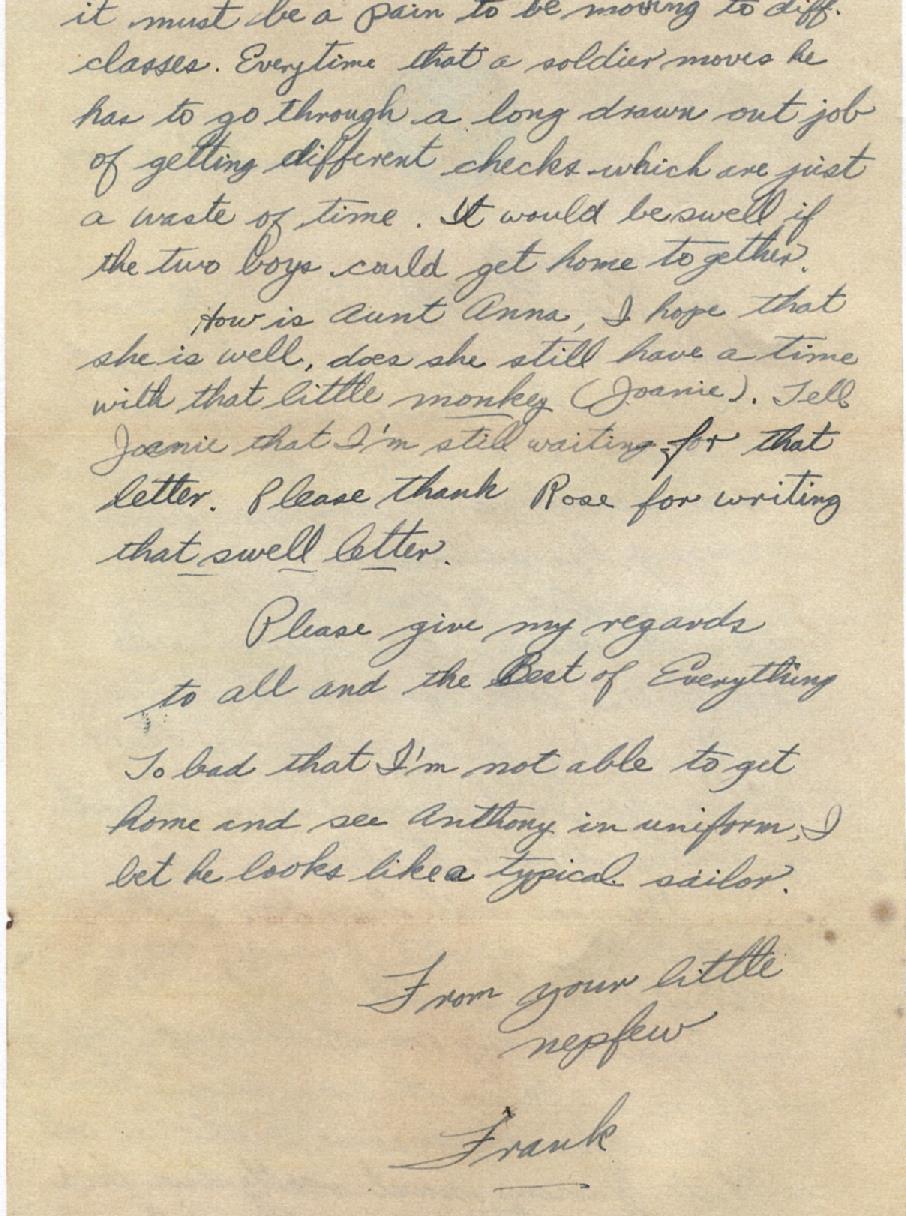 it must be a pain to be moving to diff.
classes. Everytime that a soldier moves he
has to go through a long drawn out job
of getting different checks which are just
a waste of time. It would be swell if
the two boys could get home together.
How is Aunt Anna, I hope that
she is well, does she still have a time
with that little monkey (Joanie). Tell
Joanie that I'm still waiting for that
letter. Please thank Rose for writing
that swell letter.
Please give my regards
to all and the Best of Everything
To bad that I'm not able to get
home and see Anthony in uniform, I
bet he looks like a typical sailor.
From your little
nepfew
Frank